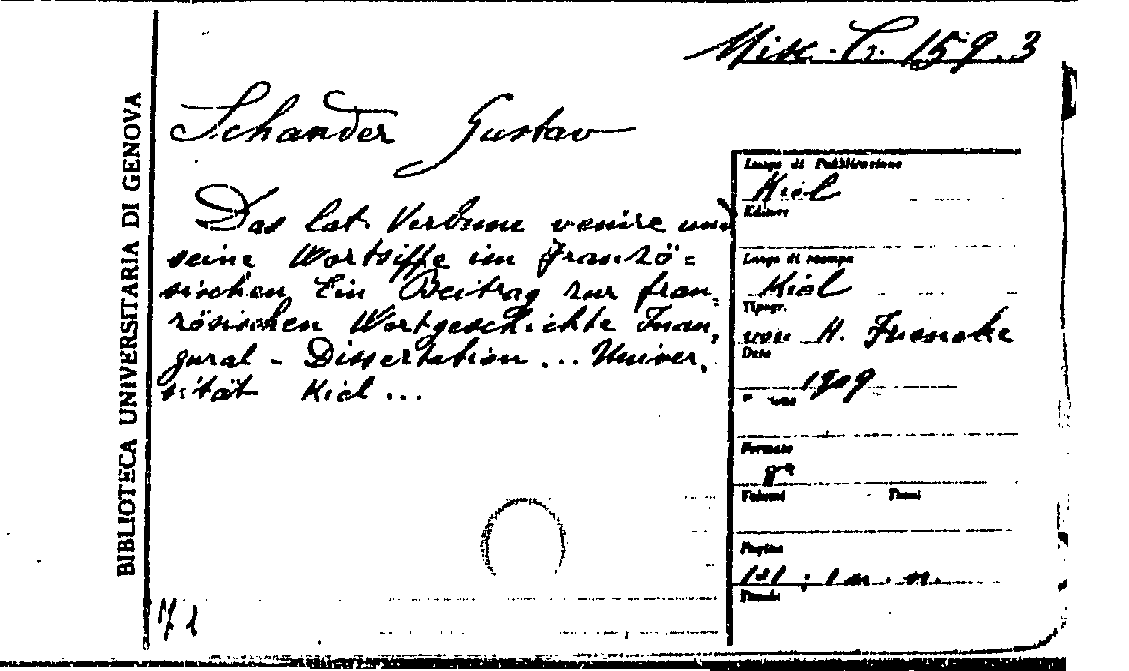 Misc. G. 159.3
BIBLIOTECA UNIVERSITARIA DI GENOVA
Schander Gustav
Das lat. Verbum venire und
seine Wortsiffe im Franzö=
sischen Ein Beitrag zur fran,
zösischen Wortgeschichte Inau,
gural - Dissertation ... Univer,
sität Kiel ...
Luogo di Pubblicazione
Kiel
Editore
Luogo di stampa
Kiel
Tipogr.
von H. Fiencke
Data
1909
Formato
8°
Volumi Tomi
Pagine
121 ; 1 n. n.